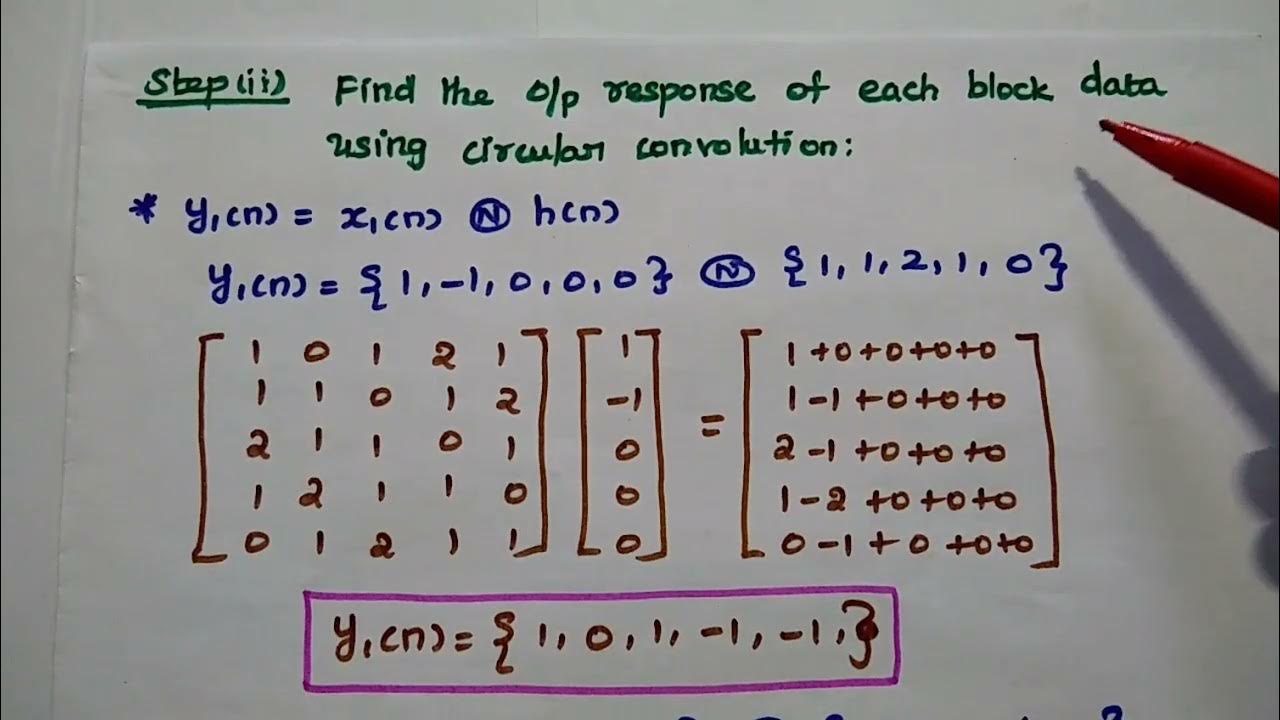 Step(ii) Find the o/p response of each block data
using circular convolution:
* y₁(n) = x₁(n) Ⓝ h(n)
y₁(n) = {1, -1, 0, 0, 0} Ⓝ {1, 1, 2, 1, 0}
[1 0 1 2 1] [1] [1+0+0+0+0]
[1 1 0 1 2] [-1] [1-1+0+0+0]
[2 1 1 0 1] [0] = [2-1+0+0+0]
[1 2 1 1 0] [0] [1-2+0+0+0]
[0 1 2 1 1] [0] [0-1+0+0+0]
y₁(n) = {1, 0, 1, -1, -1,}